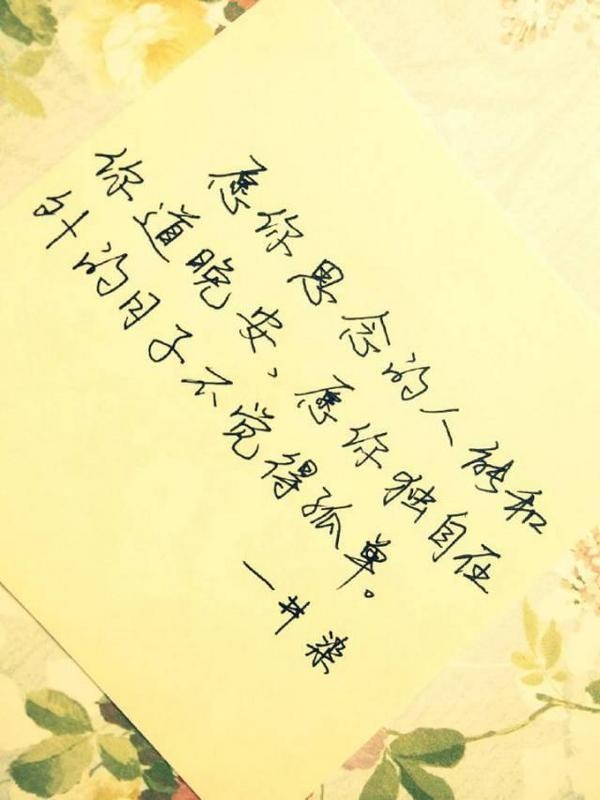 愿你思念的人能和
你道晚安，愿你独自在
外的日子不觉得孤单。
一井染